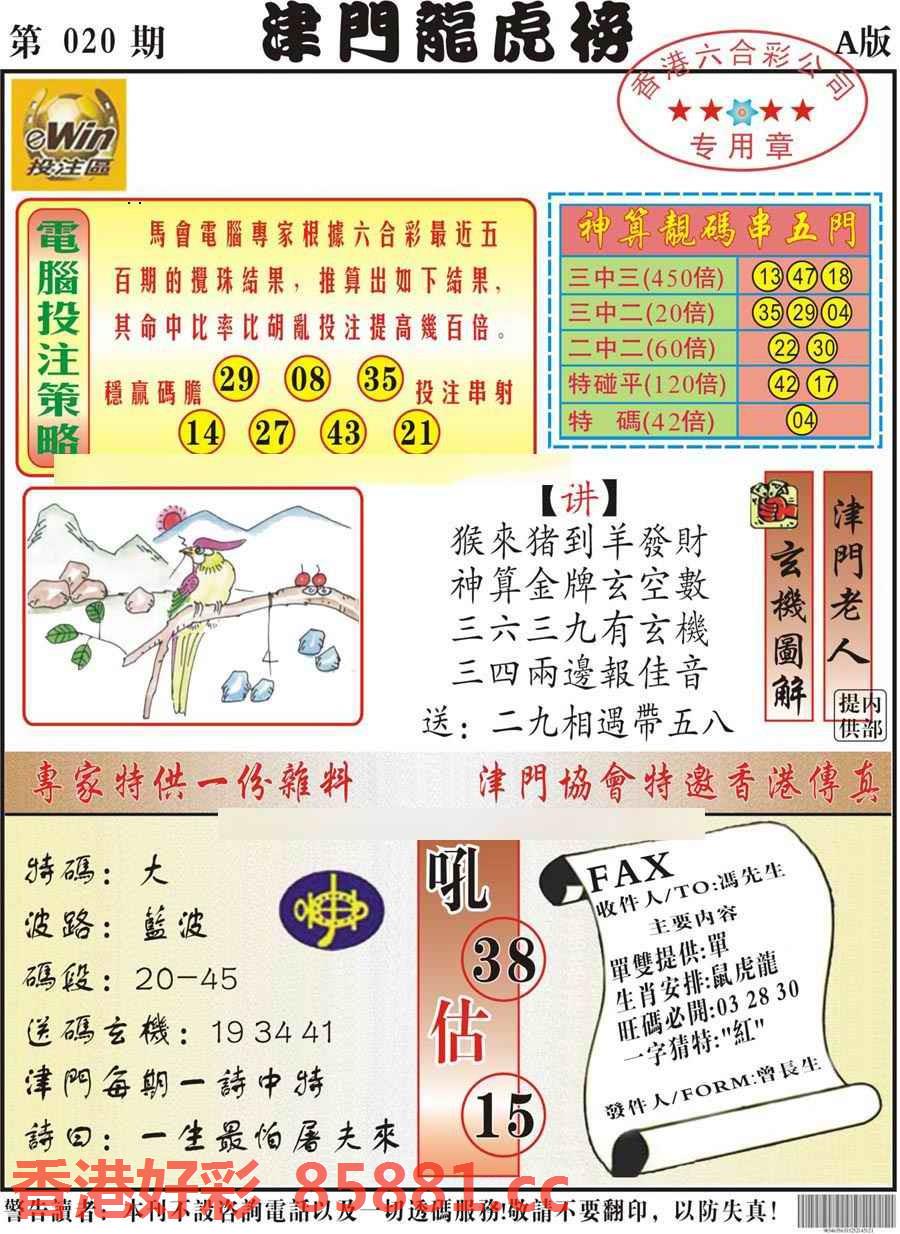 第 020 期
津門龍虎榜
A版
香港六合彩公司
专用章
eWin
投注區
電腦投注策略
馬會電腦專家根據六合彩最近五
百期的攪珠結果，推算出如下結果，
其命中比率比胡亂投注提高幾百倍。
穩贏碼膽 29 08 35 投注串射
14 27 43 21
神算靚碼串五門
三中三(450倍) 13 47 18
三中二(20倍) 35 29 04
二中二(60倍) 22 30
特碰平(120倍) 42 17
特 碼(42倍) 04
【讲】
猴來猪到羊發財
神算金牌玄空數
三六三九有玄機
三四兩邊報佳音
送：二九相遇帶五八
玄機圖解
津門老人
内部提供
專家特供一份雜料
津門協會特邀香港傳真
特碼：大
波路：藍波
碼段：20-45
送碼玄機：19 34 41
津門每期一詩中特
詩曰：一生最怕屠夫來
吼
38
估
15
FAX
收件人/TO:馮先生
主要内容
單雙提供:單
生肖安排:鼠虎龍
旺碼必開:03 28 30
一字猜特:"紅"
發件人/FORM:曾長生
香港好彩 85881.cc
警告讀者：本刊不設咨詢電話以及一切透碼服務!敬請不要翻印，以防失真!